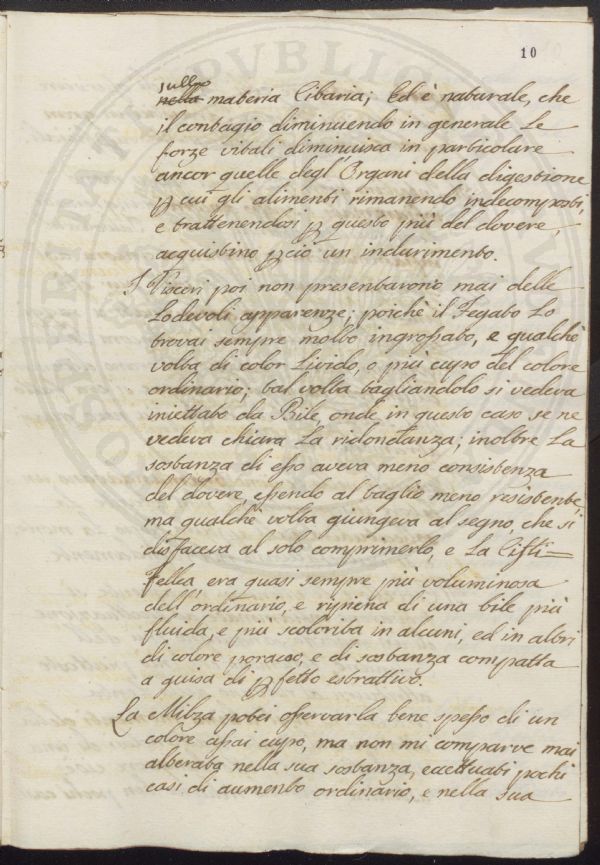 10
sulla
nella materia Cibaria; Ed è naturale, che
il contagio diminuendo in generale Le
forze vitali diminuisca in particolare
ancor quelle degl'Organi della digestione
p cui gli alimenti rimanendo indecomposti,
e trattenendosi p questo più del dovere,
acquistino pciò un indurimento.
I Visceri poi non presentarono mai delle
Lodevoli apparenze; poichè il Fegato Lo
trovai sempre molto ingrossato, e qualchè
volta di color Livido, o più cupo del colore
ordinario; tal volta tagliandolo si vedeva
iniettato da Bile, onde in questo caso se ne
vedeva chiara La ridondanza; inoltre La
sostanza di esso aveva meno consistenza
del dovere, essendo al taglio meno resistente,
ma qualchè volta giungeva al segno, che si
disfaceva al solo comprimerlo, e La Cisti=
Fellea era quasi sempre più voluminosa
dell'ordinario, e ripiena di una bile più
fluida, e più scolorita in alcuni, ed in altri
di colore poraceo, e di sostanza compatta
a guisa di pfetto estrattivo.
La Milza potei osservarla bene spesso di un
colore assai cupo, ma non mi comparve mai
alterata nella sua sostanza, eccettuati pochi
casi di aumento ordinario, e nella sua